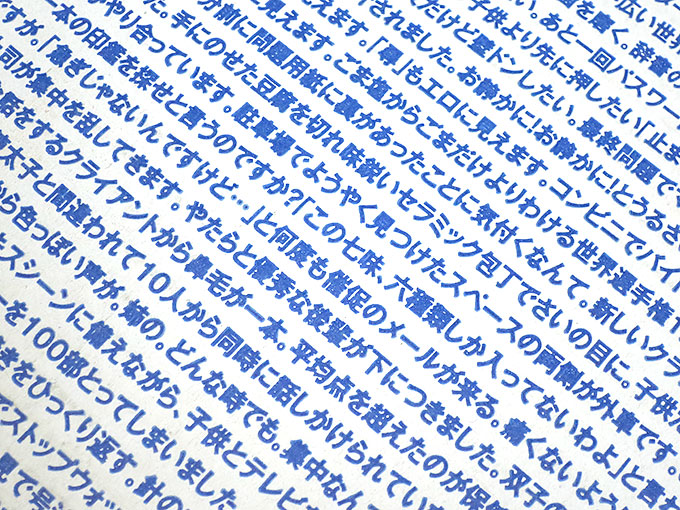 広い世界
を書く。辞書の
い。あと一回パスワー
子供より先に押したい「止ま
てだけど壁ドンしたい。最終問題で
されました。お静かに!お静かに!とうるさ
えます。「車」もエロに見えます。コンビニでバイ
見えます。ごま塩からごまだけよりわける世界選手権1
が前に問題用紙に裏があったことに気付くなんて。新しいクラ
。手にのせた豆腐を切れ味鋭いセラミック包丁でさいの目に。子供が
やり合っています。駐車場でようやく見つけたスペースの両側が外車です。
一本の印鑑を探せと言うのですか?「この七味、六種類しか入ってないわよ」と言
ですが。「急ぎじゃないんですけど…」と何度も催促のメールが来る。痛くないよう
司が集中を乱してきます。やたらと優秀な後輩が下につきました。双子の
話をするクライアントから鼻毛が一本。平均点を超えたのが保
太子と間違われて10人から同時に話しかけられてい
から色っぽい声が。姉の。どんな時でも。集中なん
スシーンに備えながら、子供とテレビ
ーを100部とってしまいました
きをひっくり返す。針の
ストップウォッ
見で号